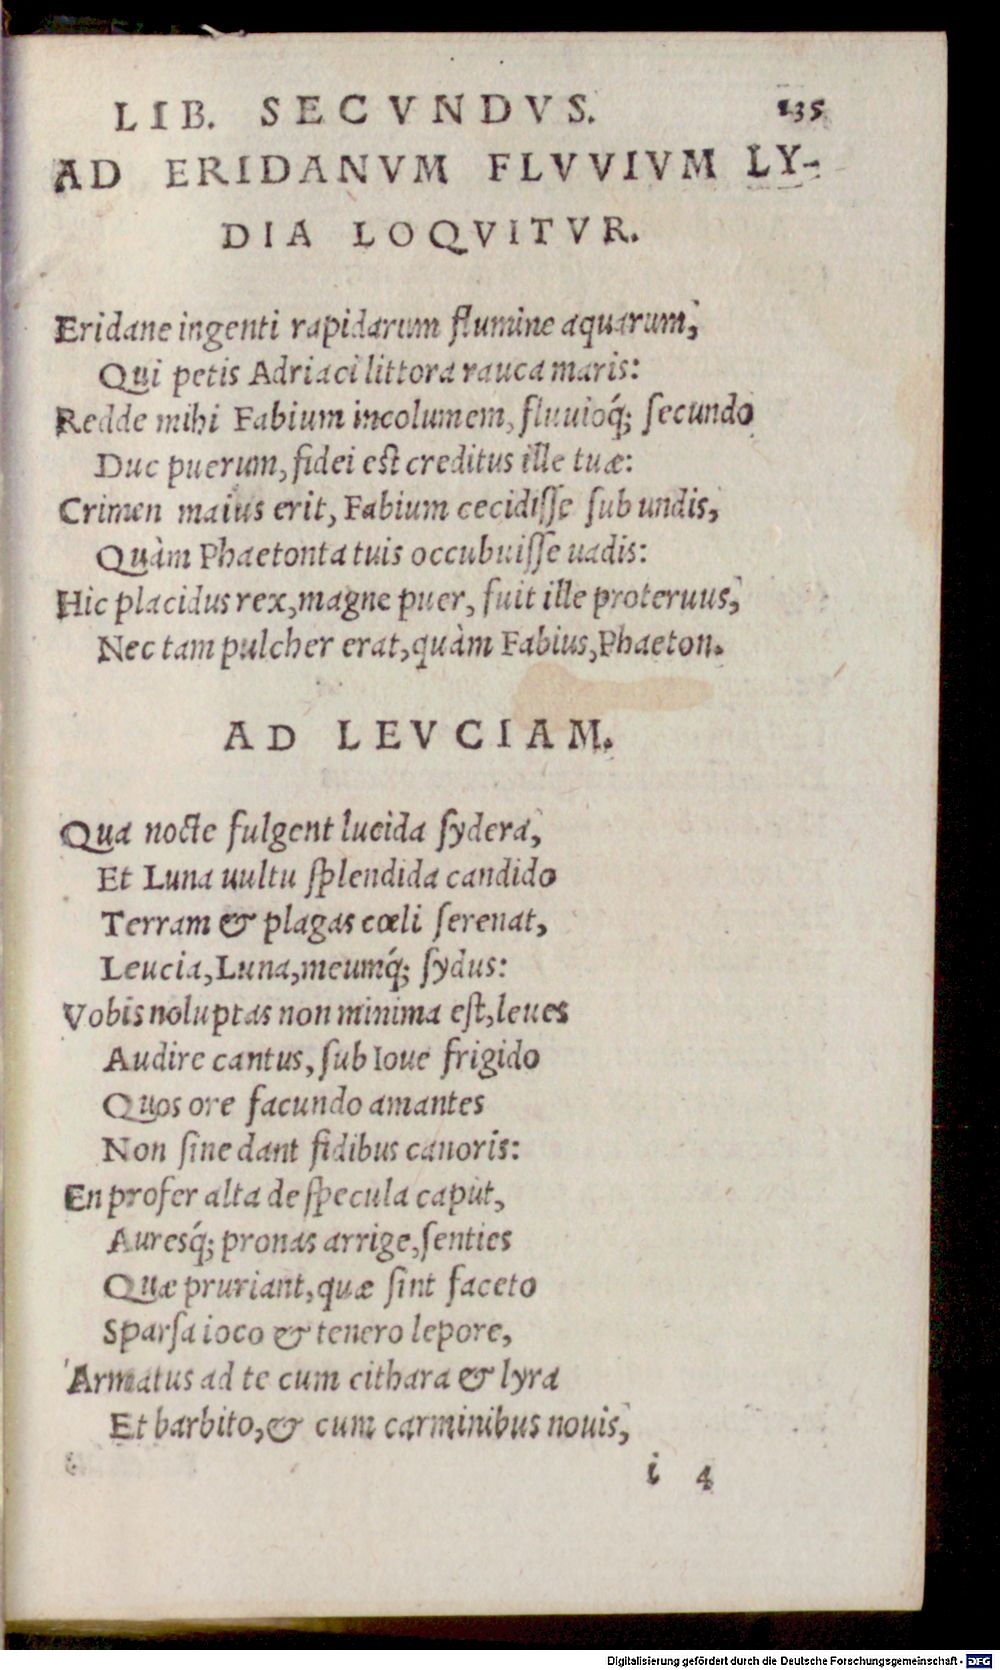 LIB. SECVNDVS. 135
AD ERIDANVM FLVVIVM LY-
DIA LOQVITVR.
Eridane ingenti rapidarum flumine aquarum,
Qui petis Adriaci littora rauca maris:
Redde mihi Fabium incolumem, fluuioq́; ſecundo
Duc puerum, fidei eſt creditus ille tuæ:
Crimen maius erit, Fabium cecidiſſe ſub undis,
Quàm Phaetonta tuis occubuiſſe uadis:
Hic placidus rex, magne puer, fuit ille proteruus,
Nec tam pulcher erat, quàm Fabius, Phaeton.
AD LEVCIAM.
Qua nocte fulgent lucida ſydera,
Et Luna uultu ſplendida candido
Terram & plagas cœli ſerenat,
Leucia, Luna, meumq́; ſydus:
Vobis uoluptas non minima eſt, leues
Audire cantus, ſub Ioue frigido
Quos ore facundo amantes
Non ſine dant fidibus canoris:
En profer alta de ſpecula caput,
Auresq́; pronas arrige, ſenties
Quæ pruriant, quæ ſint faceto
Sparſa ioco & tenero lepore,
Armatus ad te cum cithara & lyra
Et barbito, & cum carminibus nouis,
i 4
Digitalisierung gefördert durch die Deutsche Forschungsgemeinschaft - DFG